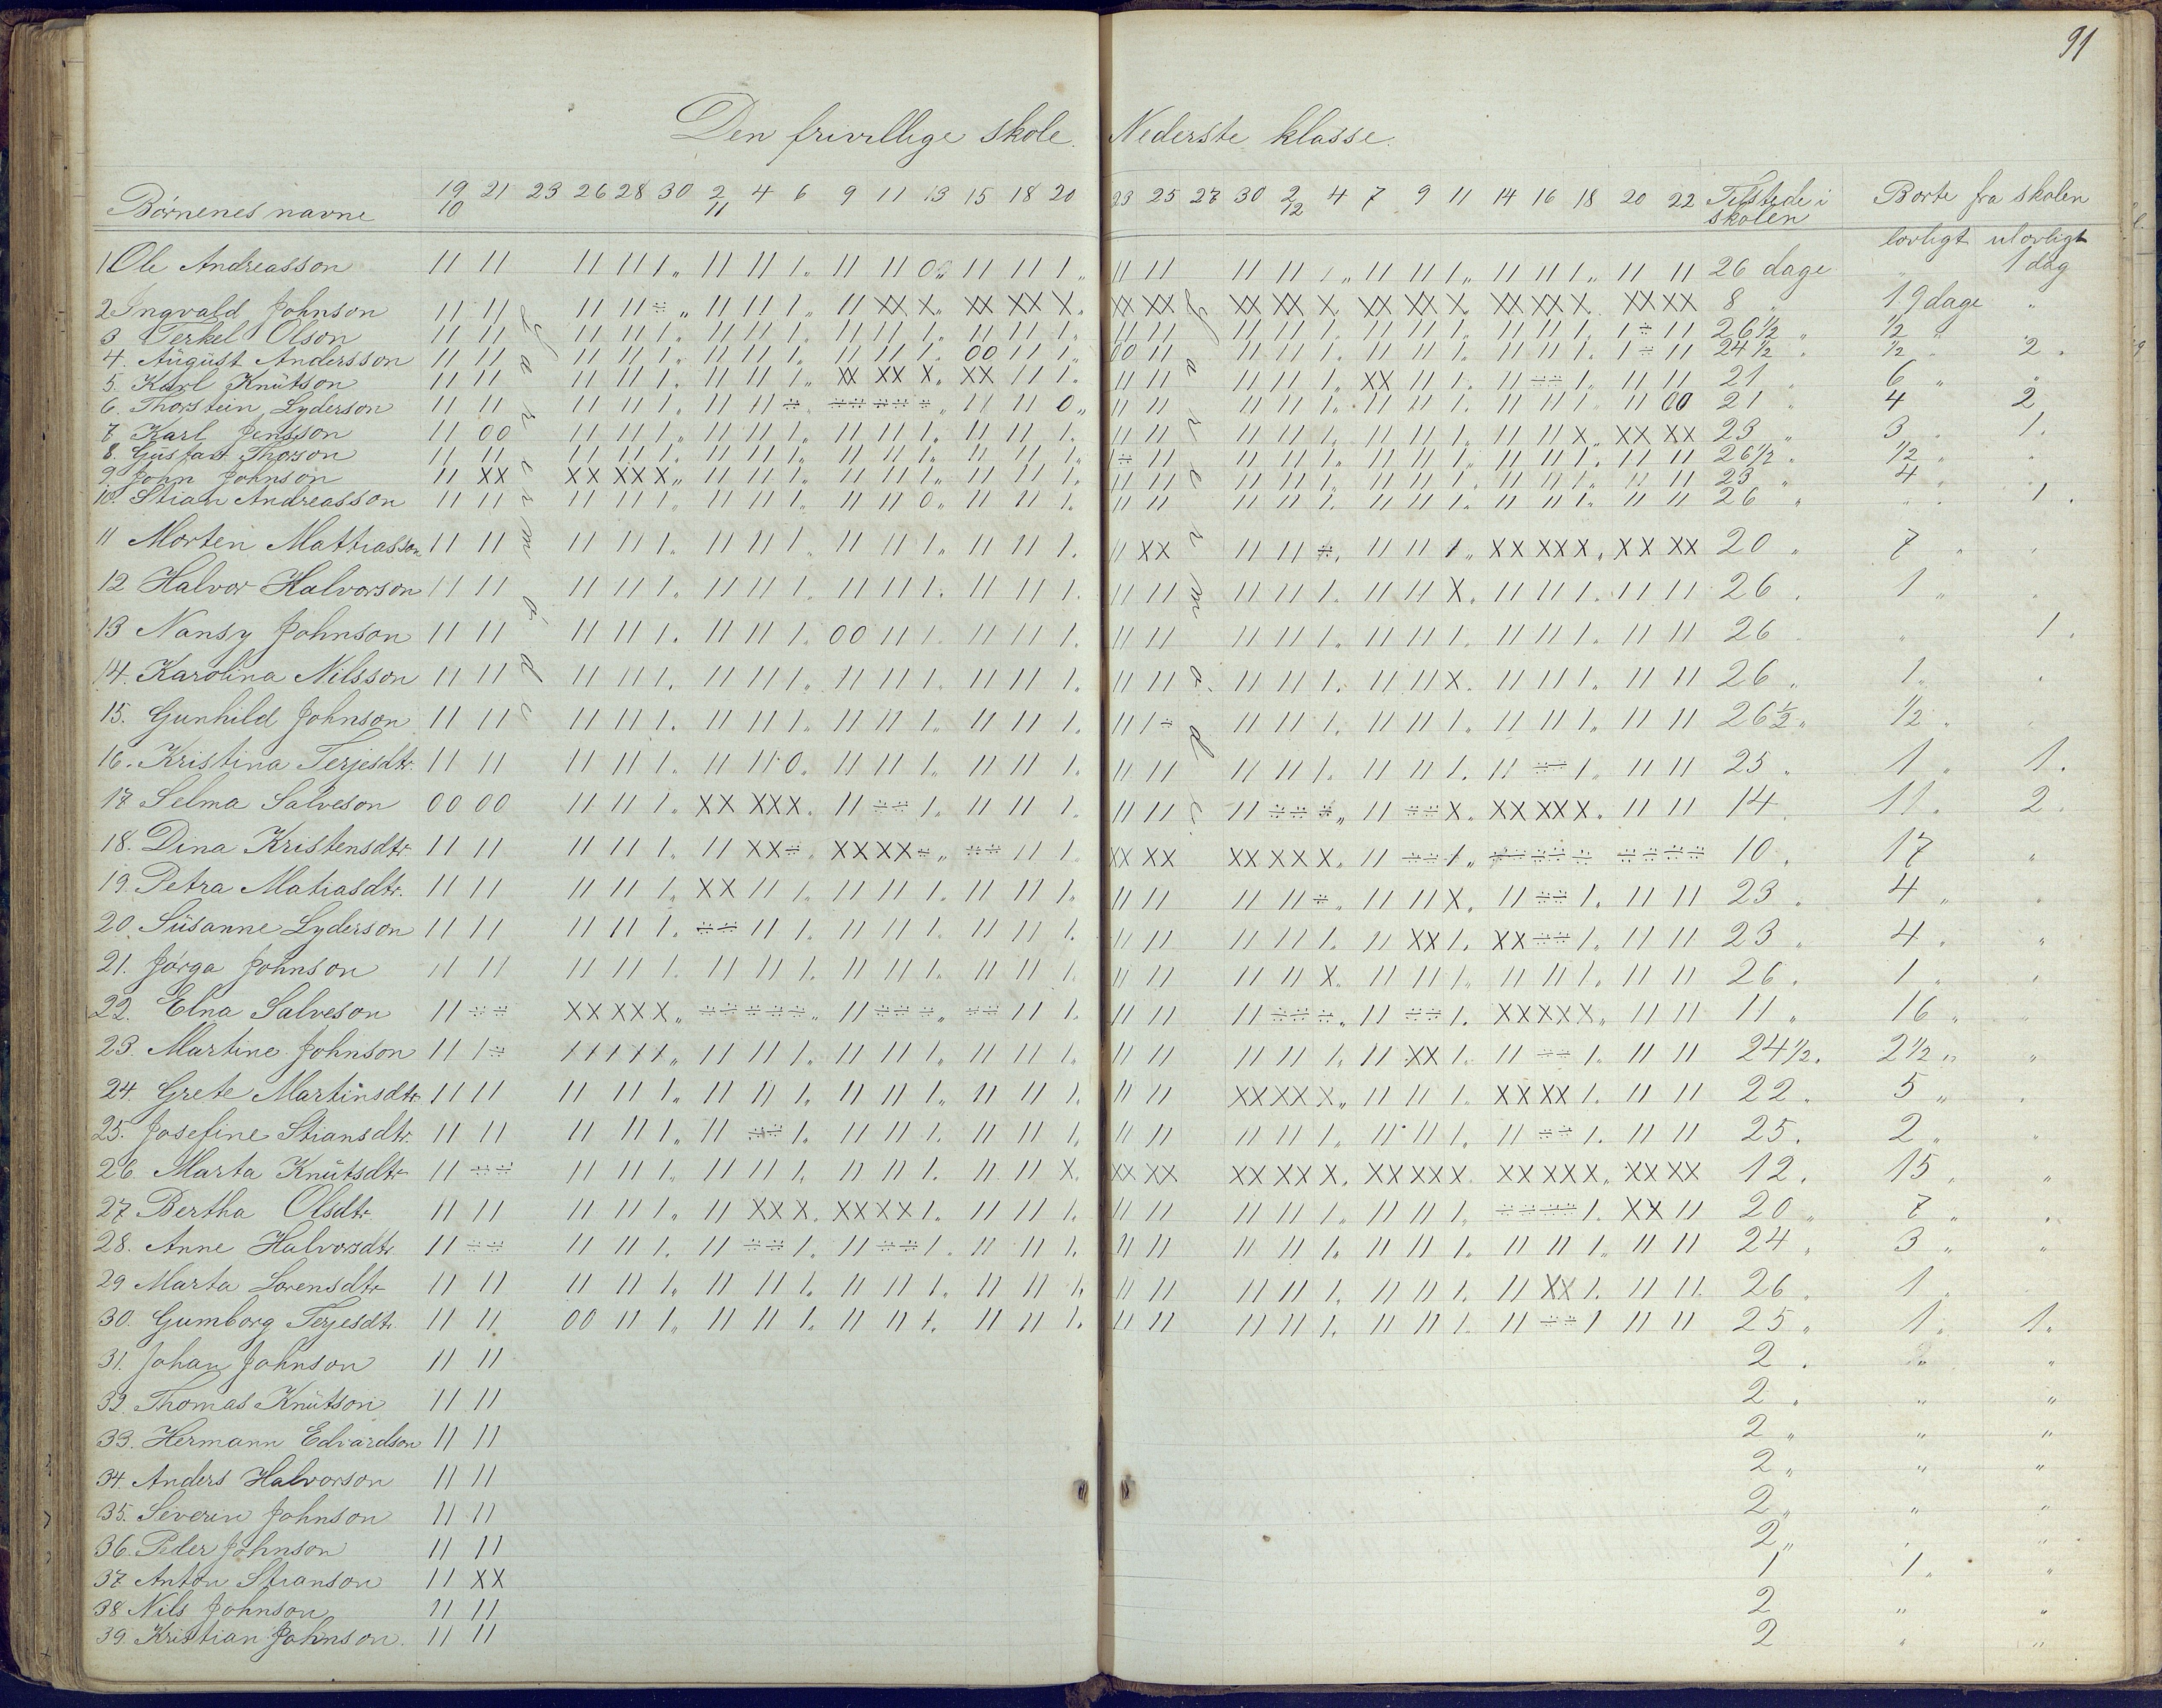 91
Den frivillige skole. Nederste klasse.
Børnenes navne 19/10 21 23 26 28 30 2/11 4 6 9 11 13 15 18 20 23 25 27 30 2/12 4 7 9 11 14 16 18 20 22 Tilstede i skolen Borte fra skolen
lovligt ulovligt
1 Ole Andreasson 11 11 11 11 1 „ 11 11 1 „ 11 11 0 „ 11 11 1 „ 11 11 11 11 1 „ 11 11 1 „ 11 11 1 „ 11 11 26 dage „ 1 dag
2 Ingvald Johnson 11 11 11 11 ÷ „ 11 11 1 „ 11 XX X „ XX XX X „ XX XX XX XX X „ XX XX X „ XX XX X „ XX XX 8 „ 19 dage „
3 Terkel Olson 11 11 11 11 1 „ 11 11 1 „ 11 11 1 „ 11 11 1 „ 11 11 11 11 1 „ 11 11 1 „ 11 11 1 „ 1÷ 11 26 1/2 „ 1/2 „ „
4. August Andersson 11 11 11 11 1 „ 11 11 1 „ 11 11 1 „ 00 11 1 „ 00 11 11 11 1 „ 11 11 1 „ 11 11 1 „ 1÷ 11 24 1/2 „ 1/2 „ 2 „
5. Karl Knutson 11 11 11 11 1 „ 11 11 1 „ XX XX X „ XX 11 1 „ 11 11 11 11 1 „ XX 11 1 „ 11 ÷÷ 1 „ 11 11 21 „ 6 „ „
6. Thorstein Lyderson 11 11 11 11 1 „ 11 11 ÷ „ ÷÷ ÷÷ ÷ „ 11 11 0 „ 11 11 11 11 1 „ 11 11 1 „ 11 11 1 „ 11 00 21 „ 4 2
7 Karl Jensson 11 00 11 11 1 „ 11 11 1 „ 11 11 1 „ 11 11 1 „ 11 11 11 11 1 „ 11 11 1 „ 11 11 X „ XX XX 23 „ 3 „ 1.
8. Gustav Thorson 11 11 11 11 1 „ 11 11 1 „ 11 11 1 „ 11 11 1 „ 1÷ 11 11 11 1 „ 11 11 1 „ 11 11 1 „ 11 11 26 1/2 „ 1/2 „ „
9. John Johnson 11 XX XX XX X „ 11 11 1 „ 11 11 1 „ 11 11 1 „ 11 11 11 11 1 „ 11 11 1 „ 11 11 1 „ 11 11 23 „ 4 „ „
10. Stian Andreasson 11 11 11 11 1 „ 11 11 1 „ 11 11 0 „ 11 11 1 „ 11 11 11 11 1 „ 11 11 1 „ 11 11 1 „ 11 11 26 „ „ 1.
11 Morten Mattiasson 11 11 11 11 1 „ 11 11 1 „ 11 11 1 „ 11 11 1 „ 11 XX 11 11 ÷ „ 11 11 1 „ XX XX X „ XX XX 20 „ 7 „ „
12 Halvor Halvorson 11 11 11 11 1 „ 11 11 1 „ 11 11 1 „ 11 11 1 „ 11 11 11 11 1 „ 11 11 X „ 11 11 1 „ 11 11 26 „ 1 „ „
13 Nansy Johnson 11 11 11 11 1 „ 11 11 1 „ 00 11 1 „ 11 11 1 „ 11 11 11 11 1 „ 11 11 1 „ 11 11 1 „ 11 11 26 „ 1.
14. Karolina Nilsson 11 11 11 11 1 „ 11 11 1 „ 11 11 1 „ 11 11 1 „ 11 11 11 11 1 „ 11 11 X „ 11 11 1 „ 11 11 26 „ 1 „ „
15. Gunhild Johnson 11 11 11 11 1 „ 11 11 1 „ 11 11 1 „ 11 11 1 „ 11 1÷ 11 11 1 „ 11 11 1 „ 11 11 1 „ 11 11 26 1/2 „ 1/2 „ „
16. Kristina Terjesdtr. 11 11 11 11 1 „ 11 11 0 „ 11 11 1 „ 11 11 1 „ 11 11 11 11 1 „ 11 11 1 „ 11 ÷÷ 1 „ 11 11 25 „ 1 „ 1.
17 Selma Salveson 00 00 11 11 1 „ XX XX X „ 11 ÷÷ 1 „ 11 11 1 „ 11 11 11 ÷÷ ÷ „ 11 ÷÷ X „ XX XX X „ 11 11 14. 11 „ 2 „
18. Dina Kristensdtr 11 11 11 11 1 „ 11 XX ÷ „ XX XX ÷ „ ÷÷ 11 1 „ XX XX XX XX X „ 11 ÷÷ 1 „ ÷÷ ÷÷ ÷ ÷÷ ÷÷ 10 „ 17 „
19. Petra Matiasdtr. 11 11 11 11 1 „ XX 11 1 „ 11 11 1 „ 11 11 1 „ 11 11 11 11 ÷ „ 11 11 X „ 11 ÷÷ 1 „ 11 11 23 „ 4 „ „
20. Susanne Lyderson 11 11 11 11 1 „ ÷÷ 11 1 „ 11 11 1 „ 11 11 1 „ 11 11 11 11 1 „ 11 XX 1 „ XX ÷÷ 1 „ 11 11 23 „ 4 „ „
21. Jørga Johnson 11 11 11 11 1 „ 11 11 1 „ 11 11 1 „ 11 11 1 „ 11 11 11 11 X „ 11 11 1 „ 11 11 1 „ 11 11 26 „ 1 „ „
22. Elna Salveson 11 ÷÷ XX XX X „ ÷÷ ÷÷ ÷ „ 11 ÷÷ ÷ „ ÷÷ 11 1 „ 11 11 11 ÷÷ ÷ „ 11 ÷÷ 1 „ XX XX X „ 11 11 11 „ 16 „ „
23. Martine Johnson 11 1÷ 11 1X X „ 11 11 1 „ 11 11 1 „ 11 11 1 „ 11 11 11 11 1 „ 11 XX 1 „ 11 ÷÷ 1 „ 11 11 24 1/2 „ 2 1/2 „ „
24. Grete Martinsdtr. 11 11 11 11 1 „ 11 11 1 „ 11 11 1 „ 11 11 1 „ 11 11 XX XX X „ 11 11 1 „ XX XX 1 „ 11 11 22 „ 5 „ „
25. Josefine Stiansdtr. 11 11 11 11 1 „ 11 ÷÷ 1 „ 11 11 1 „ 11 11 1 „ 11 11 11 11 1 „ 11 11 1 „ 11 ÷÷ 1 „ 11 11 25. 2 „ „
26. Marta Knutsdtr 11 ÷÷ 11 11 1 „ 11 11 1 „ 11 11 1 „ 11 11 X „ XX XX XX XX X „ XX XX X „ XX XX X „ XX XX 12. 15 „ „
27 Bertha Olsdtr. 11 11 11 11 1 „ 11 XX X „ XX XX 1 „ 11 11 1 „ 11 11 11 11 1 „ 11 11 1 „ ÷÷ ÷÷ 1 „ XX 11 20 „ 7 „ „
28. Anne Halvorsdtr 11 ÷÷ 11 11 1 „ 11 ÷÷ 1 „ 11 ÷÷ 1 „ 11 11 1 „ 11 11 11 11 1 „ 11 11 1 „ 11 11 1 „ 11 11 24 „ 3 „ „
29 Marta Lorensdtr 11 11 11 11 1 „ 11 11 1 „ 11 11 1 „ 11 11 1 „ 11 11 11 11 1 „ 11 11 1 „ 11 XX 1 „ 11 11 26 „ 1 „
30. Gumborg Terjesdtr. 11 11 00 11 1 „ 11 11 1 „ 11 11 1 „ 11 11 1 „ 11 11 11 11 1 „ 11 11 1 „ 11 ÷÷ 1 11 11 25 „ 1 „ 1 „
31. Johan Johnson 11 11 2 „ „ „
32. Thomas Knutson 11 11 2 „ „ „
33. Hermann Edvardson 11 11 2 „ „ „
34 Anders Halvorson 11 11 2 „ „ „
35. Severin Johnson 11 11 2 „ „ „
36. Peder Johnson 11 11 2 „ „ „
37 Anton Stianson 11 XX 1 1 „ „
38 Nils Johnson 11 11 2 „ „
39. Kristian Johnson. 11 11 2 „ „
Lærermøde
Lærermøde.